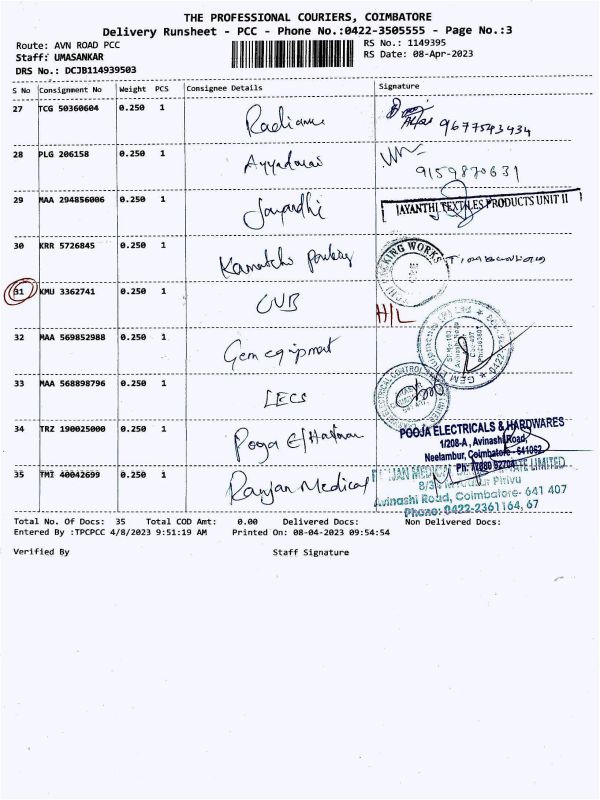 THE PROFESSIONAL COURIERS, COIMBATORE
Delivery Runsheet - PCC - Phone No.:0422-3505555 - Page No.:3
Route: AVN ROAD PCC
RS No.: 1149395
Staff: UMASANKAR
RS Date: 08-Apr-2023
DRS No.: DCJB114939503
S No Consignment No Weight PCS Consignee Details Signature
27 TCG 50360604 0.250 1 Radiance
9677543434
28 PLG 206158 0.250 1 Ayyadurai
9159870631
29 MAA 294856006 0.250 1 Jayandhi
JAYANTHI TEXTILES PRODUCTS UNIT II
30 KRR 5726845 0.250 1 Kamatchi
KING WORKS
31 KMU 3362741 0.250 1 CUB H/L
32 MAA 569852988 0.250 1 Gem eqipment
33 MAA 568898796 0.250 1 LECS
34 TRZ 190025000 0.250 1 Pooja E/Hardware
POOJA ELECTRICALS & HARDWARES
1/208-A, Avinashi Road,
Neelambur, Coimbatore - 641062
35 TMI 40042699 0.250 1 Ranjan Medical
Avinashi Road, Coimbatore- 641 407
Phone: 0422-2361164, 67
Total No. Of Docs: 35 Total COD Amt: 0.00 Delivered Docs: Non Delivered Docs:
Entered By :TPCPCC 4/8/2023 9:51:19 AM Printed On: 08-04-2023 09:54:54
Verified By Staff Signature